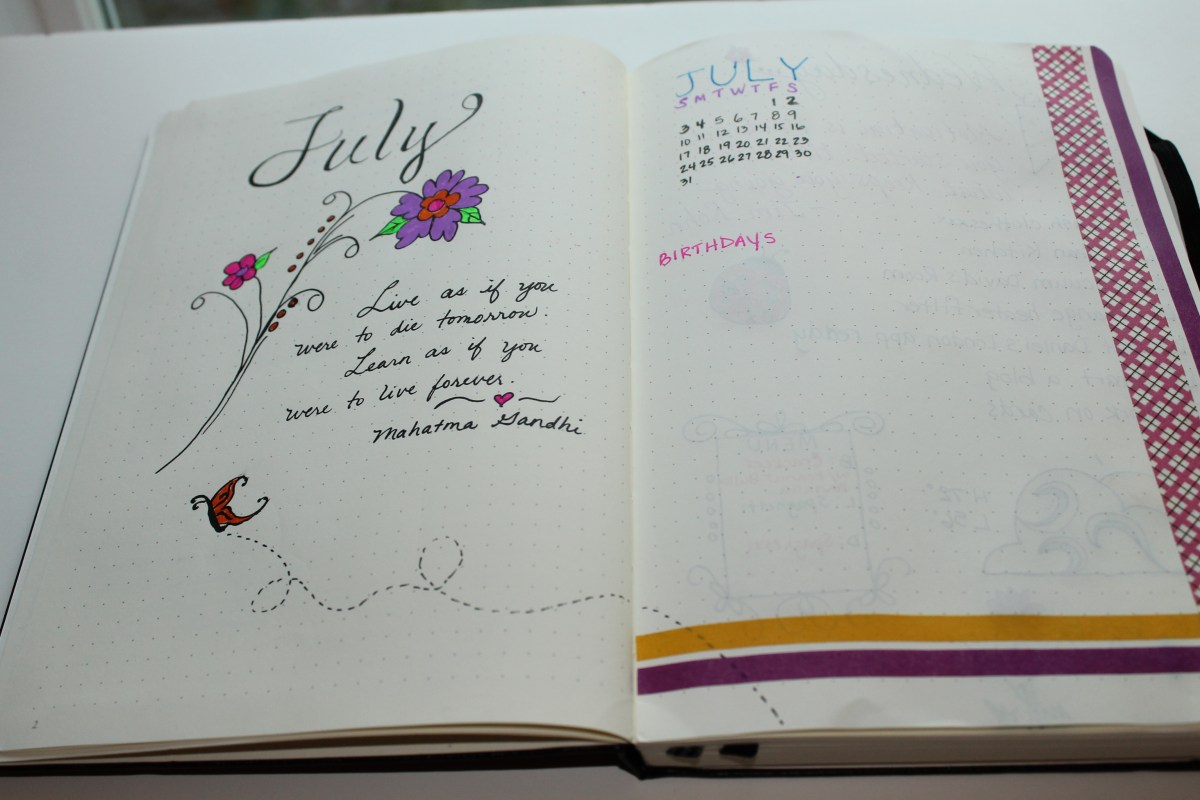 July
Live as if you
were to die tomorrow.
Learn as if you
were to live forever.
Mahatma Gandhi
2
JULY
S M T W T F S
1 2
3 4 5 6 7 8 9
10 11 12 13 14 15 16
17 18 19 20 21 22 23
24 25 26 27 28 29 30
31
BIRTHDAYS